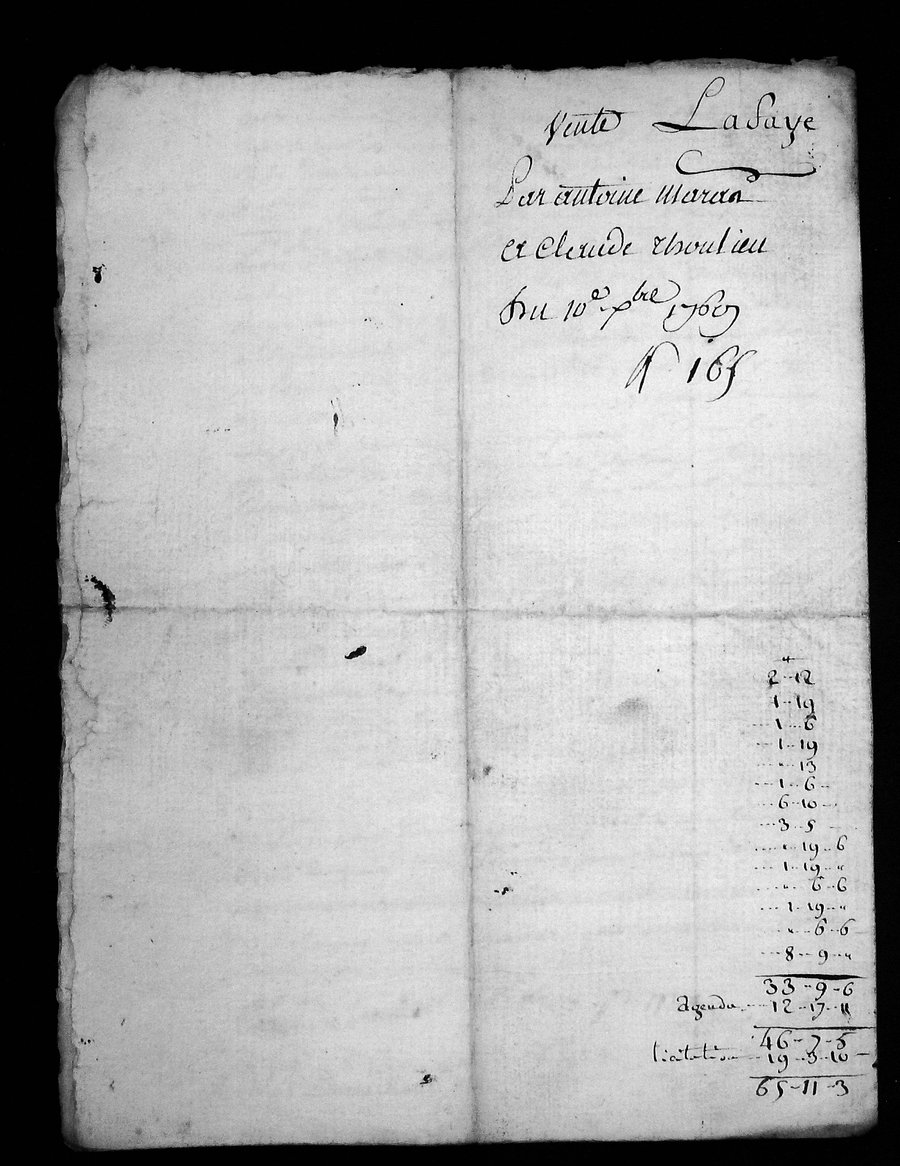 Vente Lafaye
Par antoine Maran
et Claude thoulieu
Du 10e xbre 1767
N 165
2 - 12
1 - 19
1 - 6
1 - 19
" - 13
1 - 6
6 - 10
3 - 5
" - 19 - 6
1 - 19 - "
" - 6 - 6
1 - 19 - "
" - 6 - 6
8 - 9 - "
33 - 9 - 6
agenda 12 - 17 - 11
46 - 7 - 5
19 - 3 - 10
65 - 11 - 3